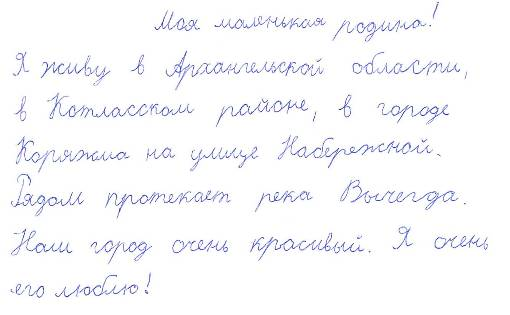 Моя маленькая родина!
Я живу в Архангельской области,
в Котласском районе, в городе
Коряжма на улице Набережной.
Рядом протекает река Вычегда.
Наш город очень красивый. Я очень
его люблю!